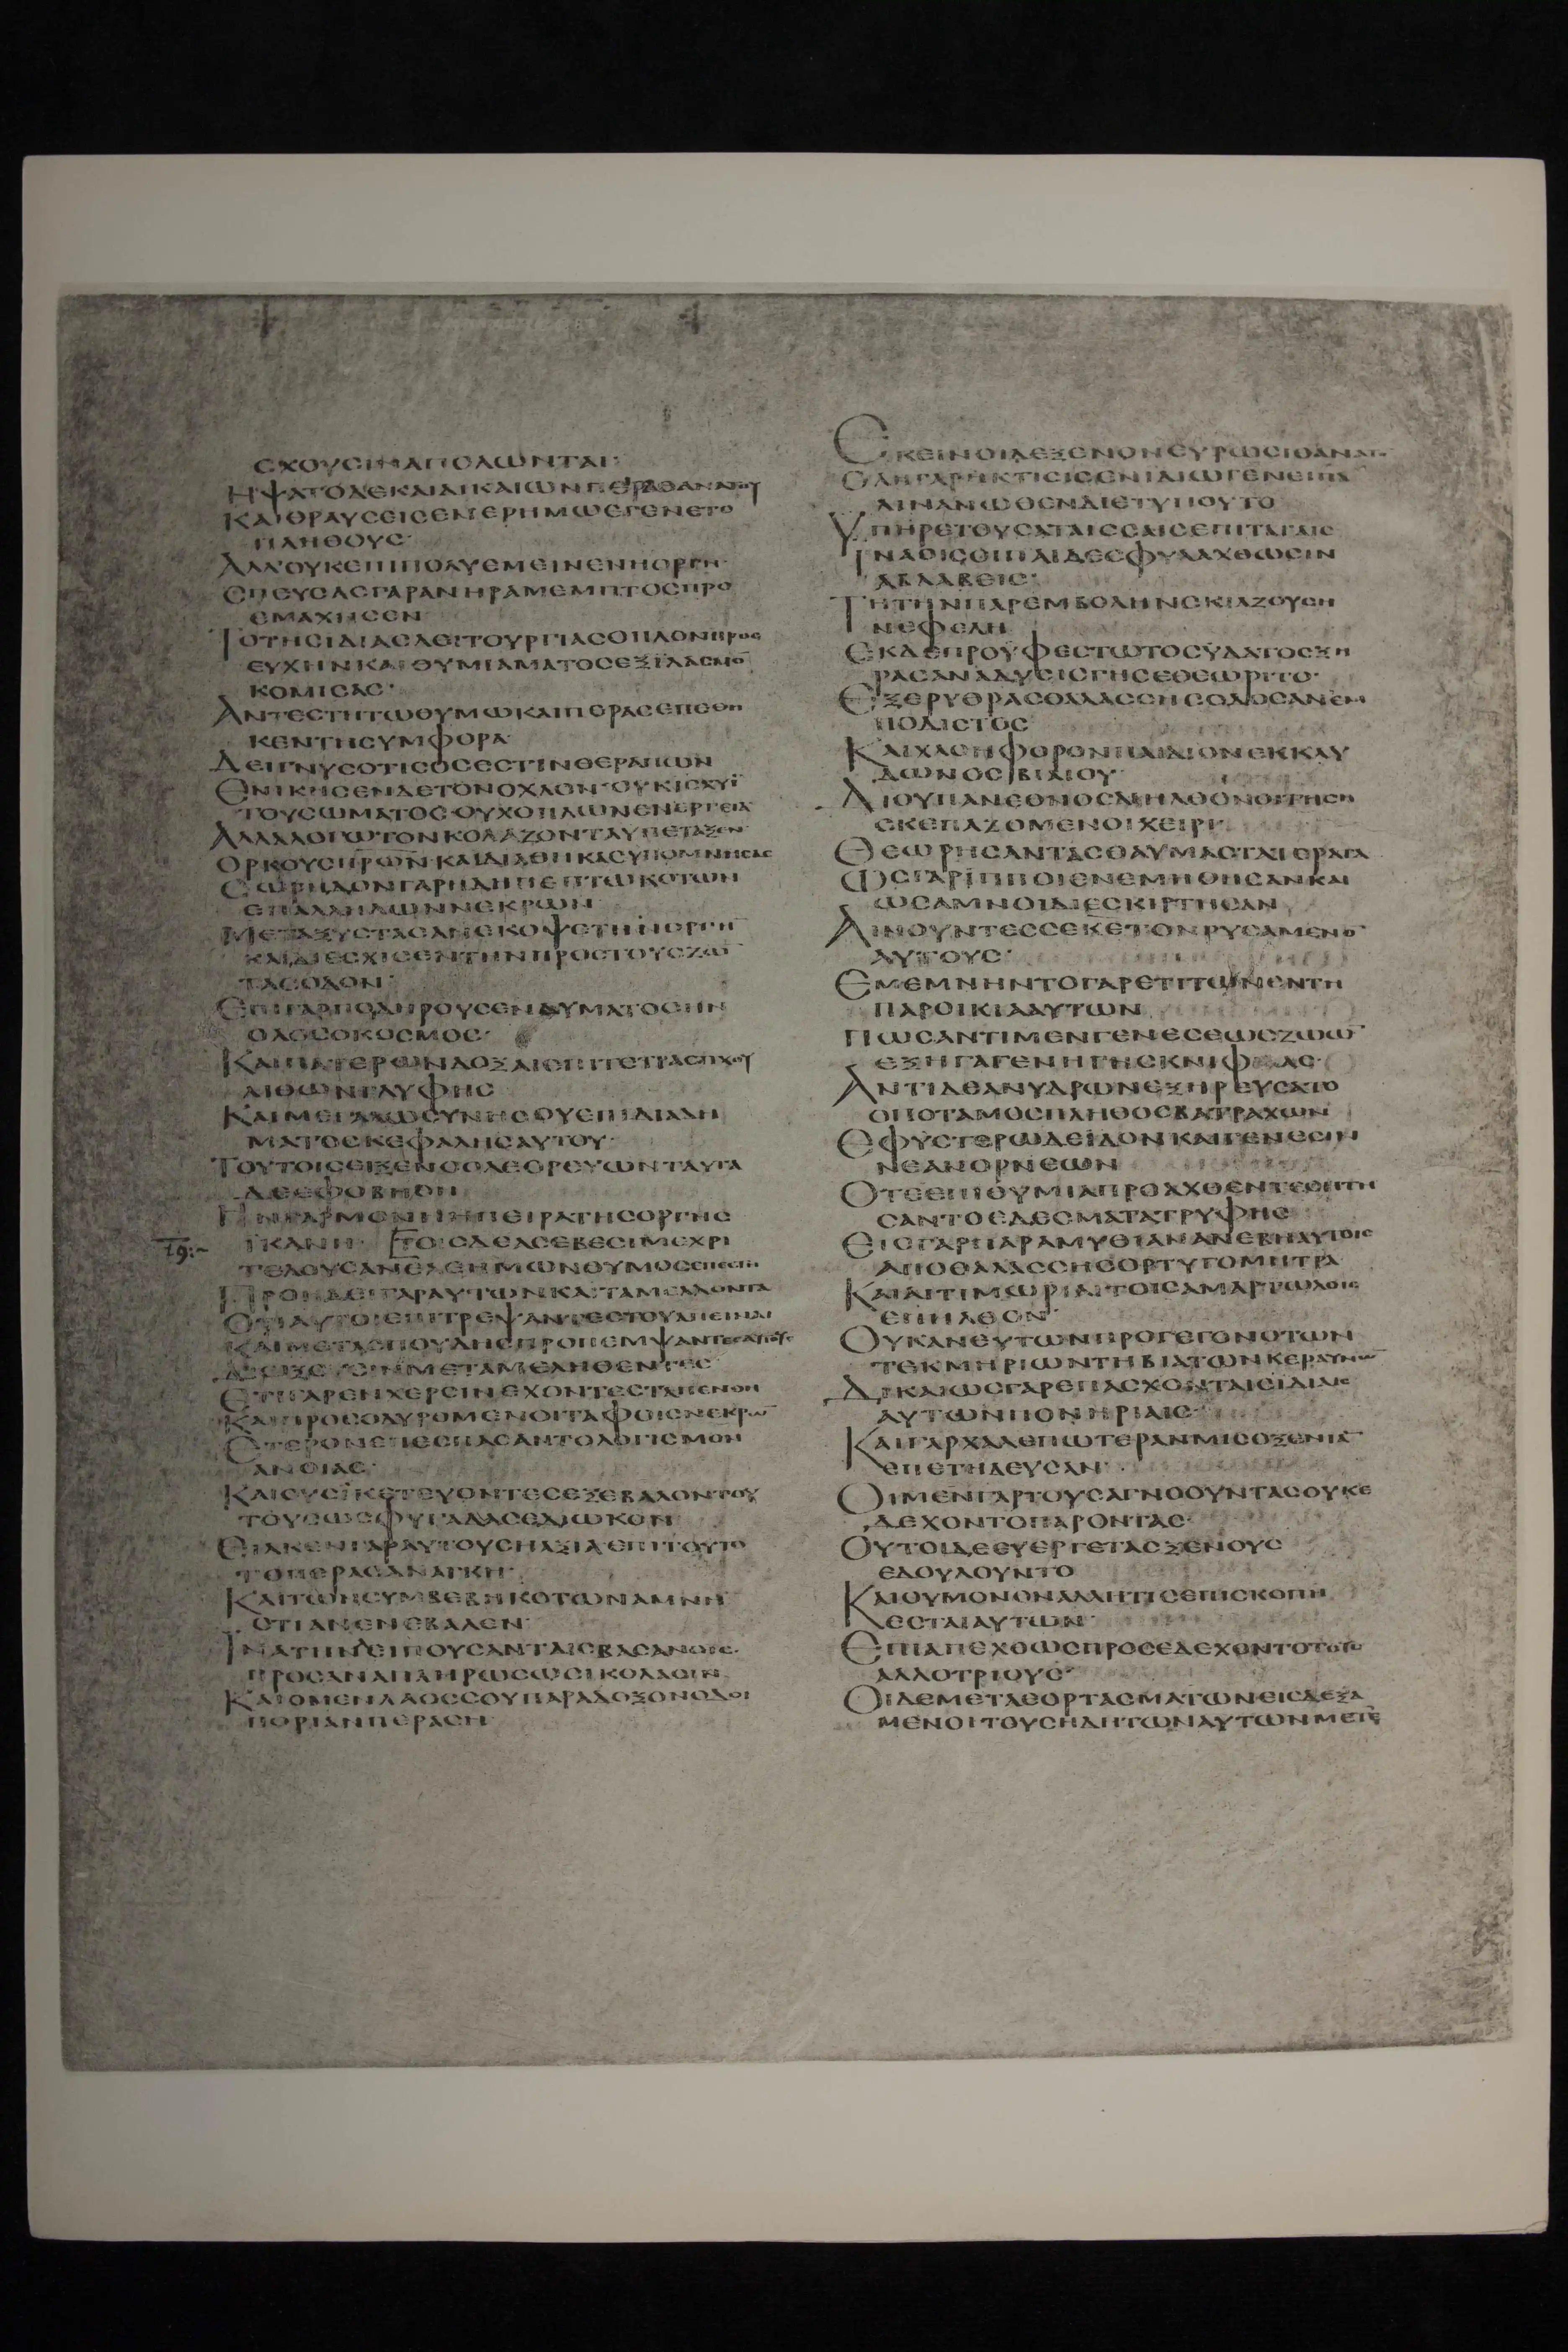 ΕΧΟΥCΙΝΑΠΟΛΩΝΤΑΙ·
ΗΨΑΤΟΔΕΚΑΙΔΙΚΑΙΩΝΠΕΙΡΑΘΑΝΑΤΟΥ
ΚΑΙΘΡΑΥCΕΙCΕΝΕΡΗΜΩΕΓΕΝΕΤΟ
ΠΛΗΘΟΥC·
ΑΛΛΟΥΚΕΠΙΠΟΛΥΕΜΕΙΝΕΝΗΟΡΓΗ·
CΠΕΥCΑCΓΑΡΑΝΗΡΑΜΕΜΠΤΟCΠΡΟ
ΕΜΑΧΗCΕΝ
ΤΟΤΗCΙΔΙΑCΛΕΙΤΟΥΡΓΙΑCΟΠΛΟΝΠΡΟC
ΕΥΧΗΝΚΑΙΘΥΜΙΑΜΑΤΟCΕΞΙΛΑCΜΟ̅
ΚΟΜΙCΑC·
ΑΝΤΕCΤΗΤΩΘΥΜΩΚΑΙΠΕΡΑCΕΠΕΘΗ
ΚΕΝΤΗCΥΜΦΟΡΑ·
ΔΕΙΓΝΥCΟΤΙCΟCΕCΤΙΝΘΕΡΑΠΩΝ
ΕΝΙΚΗCΕΝΔΕΤΟΝΟΧΛΟΝ·ΟΥΚΙCΧΥΪ
ΤΟΥCΩΜΑΤΟC·ΟΥΧΟΠΛΩΝΕΝΕΡΓΕΙΑ
ΑΛΛΑΛΟΓΩΤΟΝΚΟΛΑΖΟΝΤΑΥΠΕΤΑΞΕΝ·
ΟΡΚΟΥCΠΡ̅Ω̅Ν̅ΚΑΙΔΙΑΘΗΚΑCΥΠΟΜΝΗCΑC
CΩΡΗΔΟΝΓΑΡΗΔΗΠΕΠΤΩΚΟΤΩΝ
ΕΠΑΛΛΗΛΩΝΝΕΚΡΩΝ·
ΜΕΤΑΞΥCΤΑCΑΝΕΚΟΨΕΤΗΝΟΡΓΗ̅
ΚΑΙΔΙΕCΧΙCΕΝΤΗΝΠΡΟCΤΟΥCΖΩ̅
ΤΑCΟΔΟΝ·
ΕΠΙΓΑΡΠΟΔΗΡΟΥCΕΝΔΥΜΑΤΟCΗΝ
ΟΛΟCΟΚΟCΜΟC·
ΚΑΙΠΑΤΕΡΩΝΔΟΞΑΙΕΠΙΤΕΤΡΑCΤΙΧΟΥ
ΛΙΘΩΝΓΛΥΦΗC
ΚΑΙΜΕΓΑΛΩCΥΝΗCΟΥΕΠΙΔΙΑΔΗ
ΜΑΤΟCΚΕΦΑΛΗCΑΥΤΟΥ·
ΤΟΥΤΟΙCΕΙΞΕΝΟΟΛΕΘΡΕΥΩΝΤΑΥΤΑ
ΔΕΕΦΟΒΗΘΗ
ΗΝΓΑΡΜΟΝΗΗΠΕΙΡΑΤΗCΟΡΓΗC
ΙΚΑΝΗ· ΤΟΙCΔΕΑCΕΒΕCΙΜΕΧΡΙ
ΤΕΛΟΥCΑΝΕΛΕΗΜΩΝΘΥΜΟCΕΠΕCΤΗ
ΠΡΟΗΔΕΙΓΑΡΑΥΤΩΝΚΑΙΤΑΜΕΛΛΟΝΤΑ
ΟΤΙΑΥΤΟΙΕΠΙΤΡΕΨΑΝΤΕCΤΟΥΑΠΕΙΝΑΙ
ΚΑΙΜΕΤΑCΠΟΥΔΗCΠΡΟΠΕΜΨΑΝΤΕCΑΥΤΟΥC
ΔΙΩΞΟΥCΙΝΜΕΤΑΜΕΛΗΘΕΝΤΕC
ΕΤΙΓΑΡΕΝΧΕΡCΙΝΕΧΟΝΤΕCΤΑΠΕΝΘΗ
ΚΑΙΠΡΟCΟΔΥΡΟΜΕΝΟΙΤΑΦΟΙCΝΕΚΡΩ̅
ΕΤΕΡΟΝΕΠΕCΠΑCΑΝΤΟΛΟΓΙCΜΟΝ
ΑΝΟΙΑC·
ΚΑΙΟΥCΪΚΕΤΕΥΟΝΤΕCΕΞΕΒΑΛΟΝΤΟΥ
ΤΟΥCΩCΦΥΓΑΔΑCΕΔΙΩΚΟΝ·
ΕΙΛΚΕΝΓΑΡΑΥΤΟΥCΗΑΞΙΑΕΠΙΤΟΥΤΟ
ΤΟΠΕΡΑCΑΝΑΓΚΗ·
ΚΑΙΤΩΝCΥΜΒΕΒΗΚΟΤΩΝΑΜΝΗ
CΤΙΑΝΕΝΕΒΑΛΕΝ·
ΙΝΑΤΗΝΛΕΙΠΟΥCΑΝΤΑΙCΒΑCΑΝΟΙC·
ΠΡΟCΑΝΑΠΛΗΡΩCΩCΙΚΟΛΑCΙΝ
ΚΑΙΟΜΕΝΛΑΟCCΟΥΠΑΡΑΔΟΞΟΝΟΔΟΙ
ΠΟΡΙΑΝΠΕΡΑCΗ·
ΕΚΕΙΝΟΙΔΕΞΕΝΟΝΕΥΡΩCΙΘΑΝΑΤ
ΟΛΗΓΑΡΗΚΤΙCΙCΕΝΙΔΙΩΓΕΝΕΙΠΑ
ΛΙΝΑΝΩΘΕΝΔΙΕΤΥΠΟΥΤΟ
ΥΠΗΡΕΤΟΥCΑΤΑΙCCΑΙCΕΠΙΤΑΓΑΙC
ΙΝΑΟΙCΟΙΠΑΙΔΕCΦΥΛΑΧΘΩCΙΝ
ΑΒΛΑΒΕΙC·
ΤΗΤΗΝΠΑΡΕΜΒΟΛΗΝCΚΙΑΖΟΥCΗ
ΝΕΦΕΛΗ
ΕΚΔΕΠΡΟΥΦΕCΤΩΤΟCΥΔΑΤΟCΞΗ
ΡΑCΑΝΑΔΥCΙCΓΗCΕΘΕΩΡΙΤΟ·
ΕΞΕΡΥΘΡΑCΘΑΛΑCCΗCΟΔΟCΑΝΕΜ
ΠΟΔΙCΤΟC
ΚΑΙΧΛΟΗΦΟΡΟΝΠΑΙΔΙΟΝΕΚΚΛΥ
ΔΩΝΟCΒΙΑΙΟΥ·
ΔΙΟΥΠΑΝΕΘΝΟCΔΙΗΛΘΟΝΟΙΤΗCΗ
CΚΕΠΑΖΟΜΕΝΟΙΧΕΙΡΙ·
ΘΕΩΡΗCΑΝΤΑCΘΑΥΜΑCΤΑΤΕΡΑΤΑ
ΩCΓΑΡΙΠΠΟΙΕΝΕΜΗΘΗCΑΝΚΑΙ
ΩCΑΜΝΟΙΔΙΕCΚΙΡΤΗCΑΝ
ΑΙΝΟΥΝΤΕCCΕΚ̅Ε̅ΤΟΝΡΥCΑΜΕΝΟ̅
ΑΥΤΟΥC·
ΕΜΕΜΝΗΝΤΟΓΑΡΕΤΙΤΩΝΕΝΤΗ
ΠΑΡΟΙΚΙΑΑΥΤΩΝ
ΠΩCΑΝΤΙΜΕΝΓΕΝΕCΕΩCΖΩΩ̅
ΕΞΗΓΑΓΕΝΗΓΗCΚΝΙΦΑC·
ΑΝΤΙΔΘΑΝΥΔΡΩΝΕΞΗΡΕΥCΑΤΟ
ΟΠΟΤΑΜΟCΠΛΗΘΟCΒΑΤΡΑΧΩΝ
ΕΦΥCΤΕΡΩΔΕΪΔΟΝΚΑΙΓΕΝΕCΙΝ
ΝΕΑΝΟΡΝΕΩΝ
ΟΤΕΕΠΙΘΥΜΙΑΠΡΟΑΧΘΕΝΤΕCΗΤΗ
CΑΝΤΟΕΔΕCΜΑΤΑΤΡΥΦΗC
ΕΙCΓΑΡΠΑΡΑΜΥΘΙΑΝΑΝΕΒΗΑΥΤΟΙC
ΑΠΟΘΑΛΑCCΗCΟΡΤΥΓΟΜΗΤΡΑ
ΚΑΙΑΙΤΙΜΩΡΙΑΙΤΟΙCΑΜΑΡΤΩΛΟΙC
ΕΠΗΛΘΟΝ·
ΟΥΚΑΝΕΥΤΩΝΠΡΟΓΕΓΟΝΟΤΩΝ
ΤΕΚΜΗΡΙΩΝΤΗΒΙΑΤΩΝΚΕΡΑΥΝΩ̅
ΔΙΚΑΙΩCΓΑΡΕΠΑCΧΟΝΤΑΙCΙΔΙΑΙC
ΑΥΤΩΝΠΟΝΗΡΙΑΙC·
ΚΑΙΓΑΡΧΑΛΕΠΩΤΕΡΑΝΜΙCΟΞΕΝΙΑ̅
ΕΠΕΤΗΔΕΥCΑΝ·
ΟΙΜΕΝΓΑΡΤΟΥCΑΓΝΟΟΥΝΤΑCΟΥΚΕ
ΔΕΧΟΝΤΟΠΑΡΟΝΤΑC·
ΟΥΤΟΙΔΕΕΥΕΡΓΕΤΑCΞΕΝΟΥC
ΕΔΟΥΛΟΥΝΤΟ
ΚΑΙΟΥΜΟΝΟΝΑΛΛΗΤΙCΕΠΙCΚΟΠΗ
ΕCΤΑΙΑΥΤΩΝ·
ΕΠΙΑΠΕΧΘΩCΠΡΟCΕΔΕΧΟΝΤΟΤΟΥC
ΑΛΛΟΤΡΙΟΥC·
ΟΙΔΕΜΕΤΑΕΟΡΤΑCΜΑΤΩΝΕΙCΔΕΞΑ
ΜΕΝΟΙΤΟΥCΗΔΗΤΩΝΑΥΤΩΝΜΕΤΕ